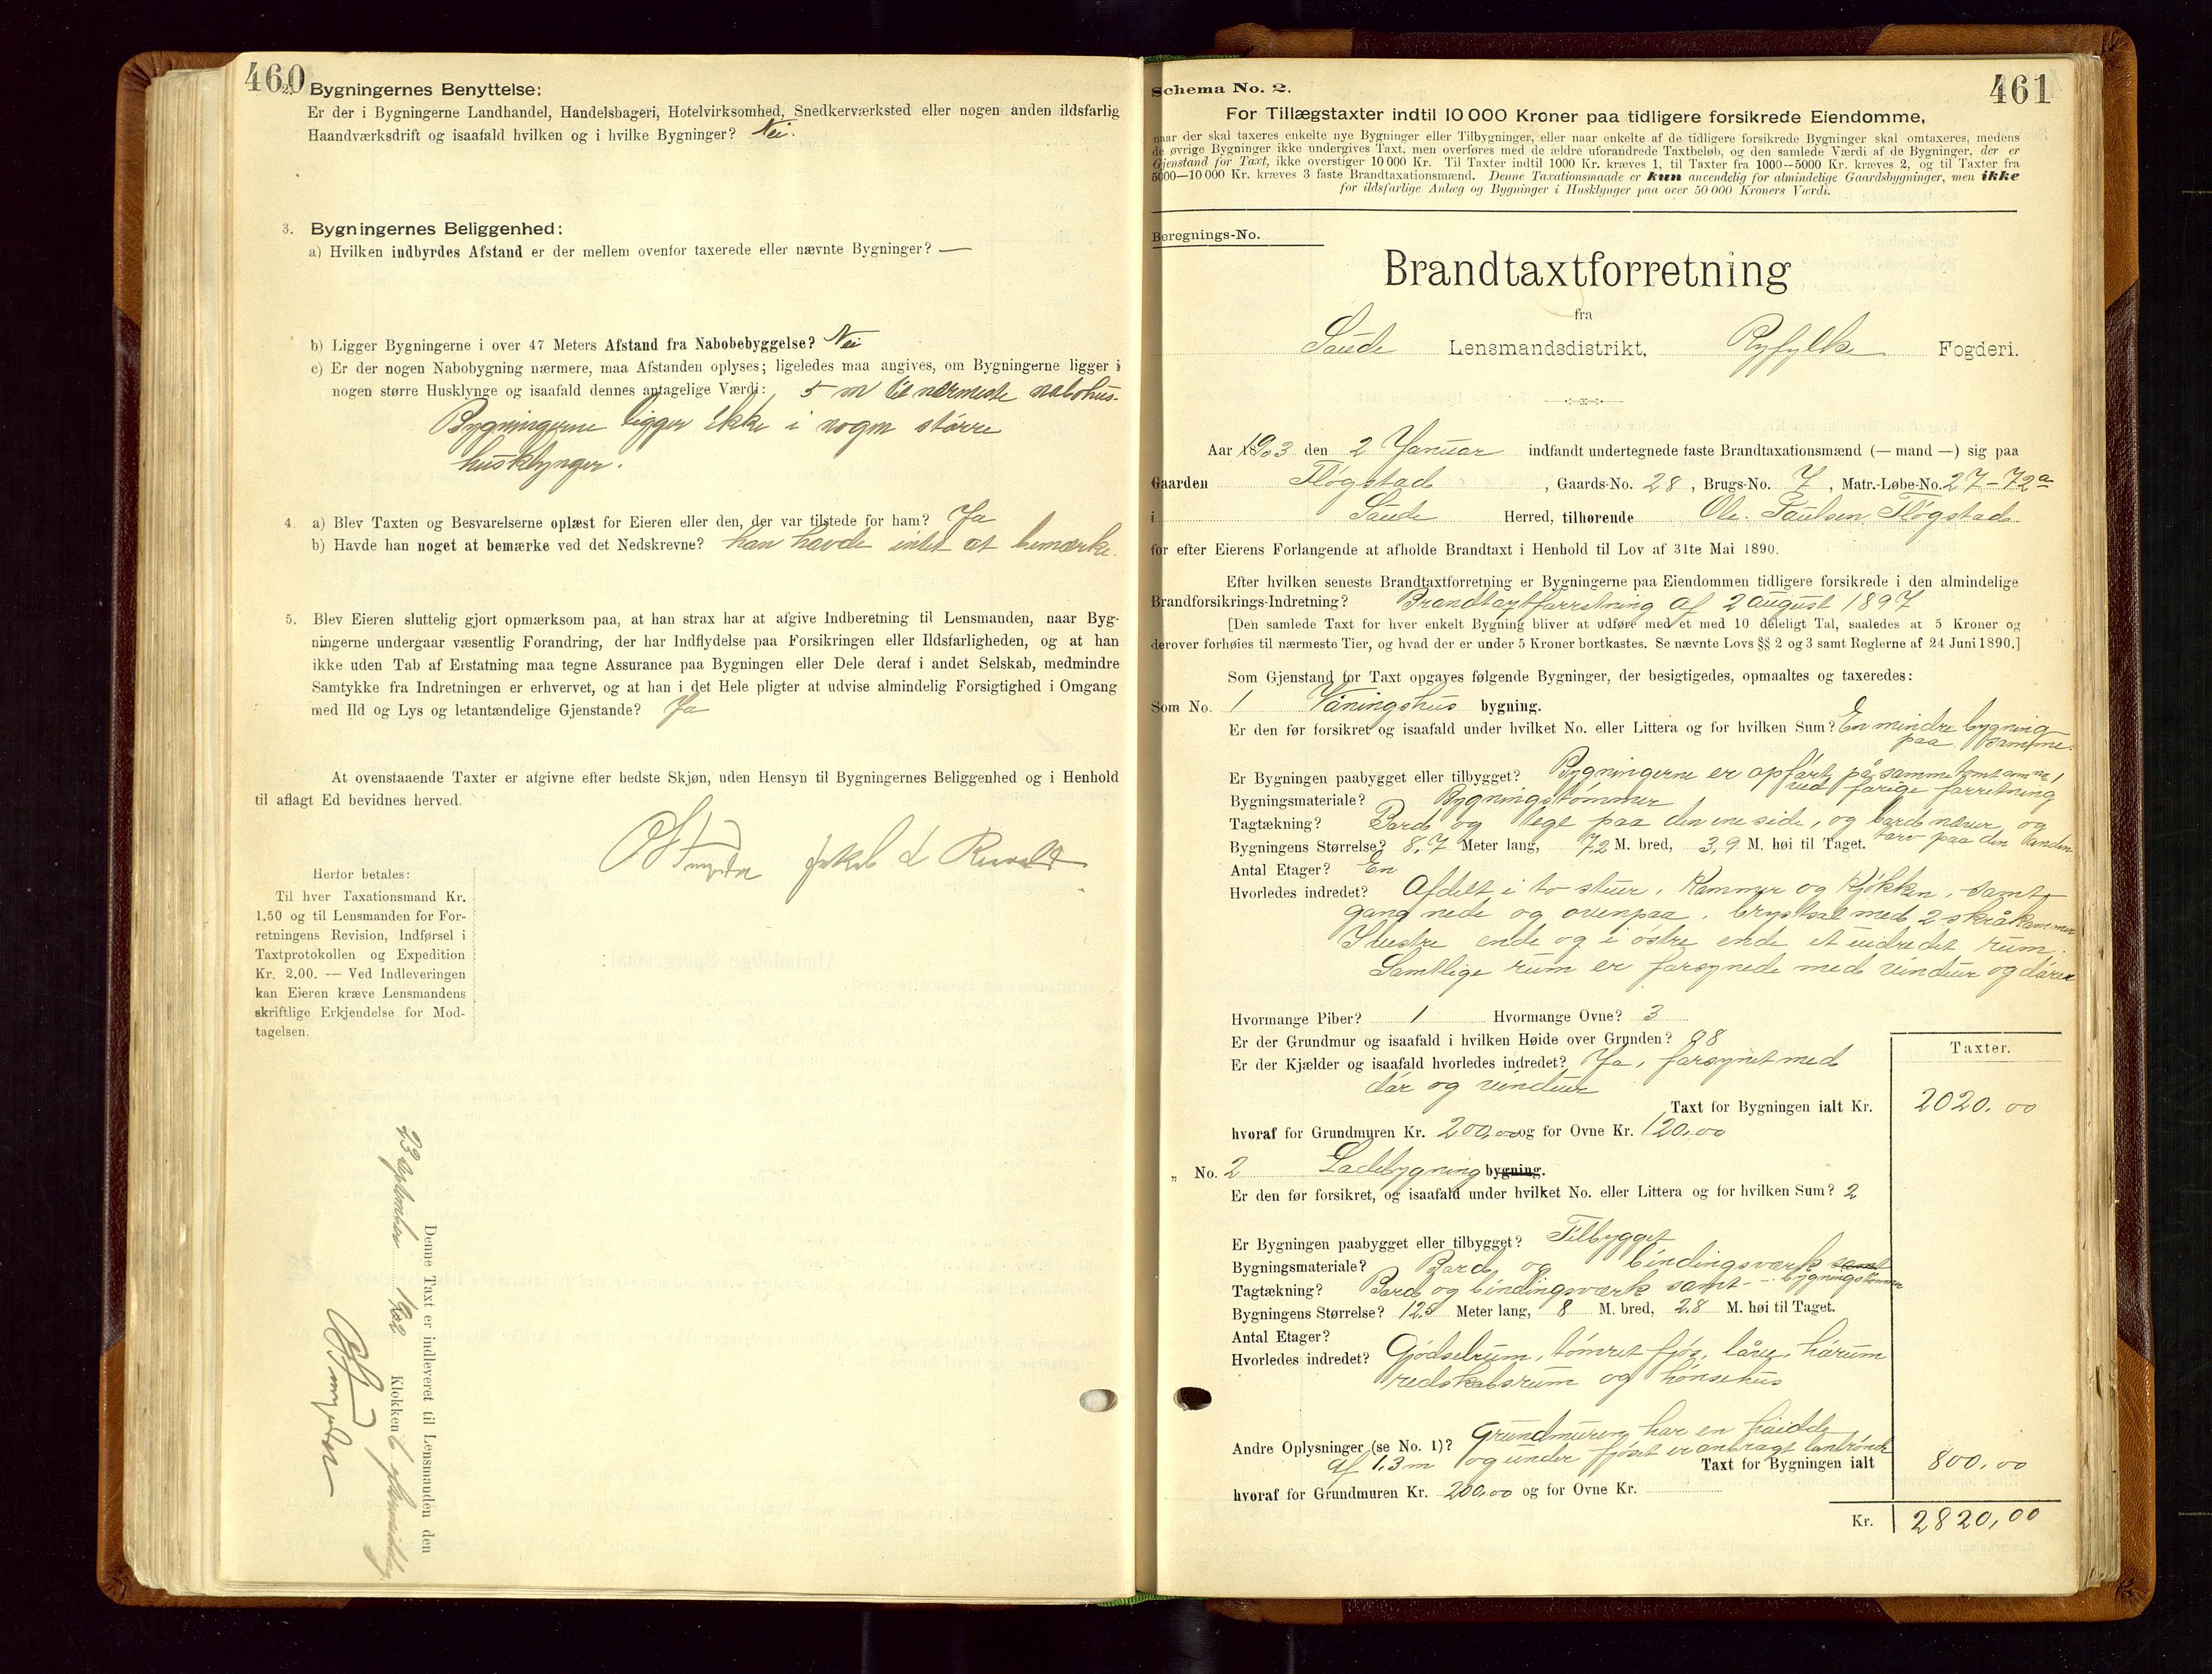 460
2. Bygningernes Benyttelse:
Er der i Bygningerne Landhandel, Handelsbageri, Hotelvirksomhed, Snedkerværksted eller nogen anden ildsfarlig
Haandværksdrift og isaafald hvilken og i hvilke Bygninger? Nei.
3. Bygningernes Beliggenhed:
a) Hvilken indbyrdes Afstand er der mellem ovenfor taxerede eller nævnte Bygninger? —
b) Ligger Bygningerne i over 47 Meters Afstand fra Nabobebyggelse? Nei
c) Er der nogen Nabobygning nærmere, maa Afstanden oplyses; ligeledes maa angives, om Bygningerne ligger i
nogen større Husklynge og isaafald dennes antagelige Værdi: 5 m til nærmeste nabohus.
Bygningerne ligger ikke i nogen større
husklynger.
4. a) Blev Taxten og Besvarelserne oplæst for Eieren eller den, der var tilstede for ham? Ja
b) Havde han noget at bemærke ved det Nedskrevne? han havde intet at bemærke.
5. Blev Eieren sluttelig gjort opmærksom paa, at han strax har at afgive Indberetning til Lensmanden, naar Byg-
ningerne undergaar væsentlig Forandring, der har Indflydelse paa Forsikringen eller Ildsfarligheden, og at han
ikke uden Tab af Erstatning maa tegne Assurance paa Bygningen eller Dele deraf i andet Selskab, medmindre
Samtykke fra Indretningen er erhvervet, og at han i det Hele pligter at udvise almindelig Forsigtighed i Omgang
med Ild og Lys og letantændelige Gjenstande? Ja
At ovenstaaende Taxter er afgivne efter bedste Skjøn, uden Hensyn til Bygningernes Beliggenhed og i Henhold
til aflagt Ed bevidnes herved.
Herfor betales:
Til hver Taxationsmand Kr.
1.50 og til Lensmanden for For-
retningens Revision, Indførsel i
Taxtprotokollen og Expedition
Kr. 2.00. — Ved Indleveringen
kan Eieren kræve Lensmandens
skriftlige Erkjendelse for Mod-
tagelsen.
Denne Taxt er indleveret til Lensmanden den
23 September 1902 Klokken 6 eftermiddag
461
Schema No. 2.
For Tillægstaxter indtil 10 000 Kroner paa tidligere forsikrede Eiendomme,
naar der skal taxeres enkelte nye Bygninger eller Tilbygninger, eller naar enkelte af de tidligere forsikrede Bygninger skal omtaxeres, medens
de øvrige Bygninger ikke undergives Taxt, men overføres med de ældre uforandrede Taxtbeløb, og den samlede Værdi af de Bygninger, der er
Gjenstand for Taxt, ikke overstiger 10 000 Kr. Til Taxter indtil 1000 Kr. kræves 1, til Taxter fra 1000—5000 Kr. kræves 2, og til Taxter fra
5000—10 000 Kr. kræves 3 faste Brandtaxationsmænd. Denne Taxationsmaade er kun anvendelig for almindelige Gaardsbygninger, men ikke
for ildsfarlige Anlæg og Bygninger i Husklynger paa over 50 000 Kroners Værdi.
Beregnings-No.
Brandtaxtforretning
fra
Saude Lensmandsdistrikt, Ryfylke Fogderi.
Aar 1903 den 2 Januar indfandt undertegnede faste Brandtaxationsmænd (— mand —) sig paa
Gaarden Fløgstad, Gaards-No. 28, Brugs-No. 7, Matr.-Løbe-No. 27-72a
i Saude Herred, tilhørende Ole Paulsen Fløgstad
for efter Eierens Forlangende at afholde Brandtaxt i Henhold til Lov af 31te Mai 1890.
Efter hvilken seneste Brandtaxtforretning er Bygningerne paa Eiendommen tidligere forsikrede i den almindelige
Brandforsikrings-Indretning? Brandtaxtforretning af 2 august 1897
[Den samlede Taxt for hver enkelt Bygning bliver at udføre med et med 10 deleligt Tal, saaledes at 5 Kroner og
derover forhøies til nærmeste Tier, og hvad der er under 5 Kroner bortkastes. Se nævnte Lovs §§ 2 og 3 samt Reglerne af 24 Juni 1890.]
Som Gjenstand for Taxt opgaves følgende Bygninger, der besigtigedes, opmaaltes og taxeredes:
Som No. 1 Våningshus bygning.
Er den før forsikret og isaafald under hvilket No. eller Littera og for hvilken Sum? En mindre bygning
paa samme.
Er Bygningen paabygget eller tilbygget? Bygningerne er opført på samme tomt som no 1
ved forige forretning
Bygningsmateriale? Bygningstømmer
Tagtækning? Bord og lege paa den ene side, og bord nærer og
Bygningens Størrelse? 8,7 Meter lang, 7,2 M. bred, 3,9 M. høi til Taget. torv paa den anden
Antal Etager? En
Hvorledes indredet? Afdelt i to stuer, Kammer og Kjøkken, samt
gang nede og ovenpaa, brystsal med 2 skråkammer
I vestre ende og i østre ende et uidredet rum.
Samtlige rum er forsynede med vinduer og døre
Hvormange Piber? 1 Hvormange Ovne? 3
Er der Grundmur og isaafald i hvilken Høide over Grunden? 0,8
Er der Kjælder og isaafald hvorledes indredet? Ja, forsynet med
dør og vinduer
Taxter.
Taxt for Bygningen ialt Kr. 2020.00
hvoraf for Grundmuren Kr. 200,00 og for Ovne Kr. 120,00
" No. 2 Ladebygning bygning.
Er den før forsikret, og isaafald under hvilket No. eller Littera og for hvilken Sum? 2
Er Bygningen paabygget eller tilbygget? Tilbygget
Bygningsmateriale? Bord og bindingsværk samt
Tagtækning? Bord og bindingsværk samt - bygningstømmer
Bygningens Størrelse? 12,5 Meter lang, 8 M. bred, 2,8 M. høi til Taget.
Antal Etager?
Hvorledes indredet? Gjødselrum, tømret fjøs, låve, hørum
redskabsrum og hønsehus
Andre Oplysninger (se No. 1)? Grundmuren har en høidde
af 1,3 m og under fjøset er anbragt
Taxt for Bygningen ialt 800,00
hvoraf for Grundmuren Kr. 200,00 og for Ovne Kr.
Kr. 2820,00